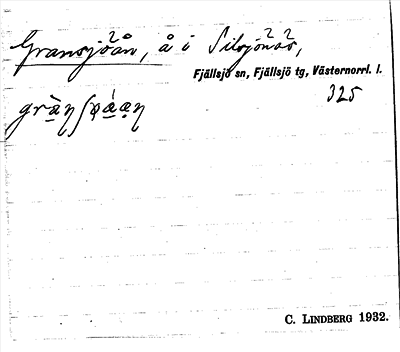 Gransjöån, å i Silsjönäs,
Fjällsjö sn, Fjällsjö tg, Västernorrl. l.
325
C. LINDBERG 1932.